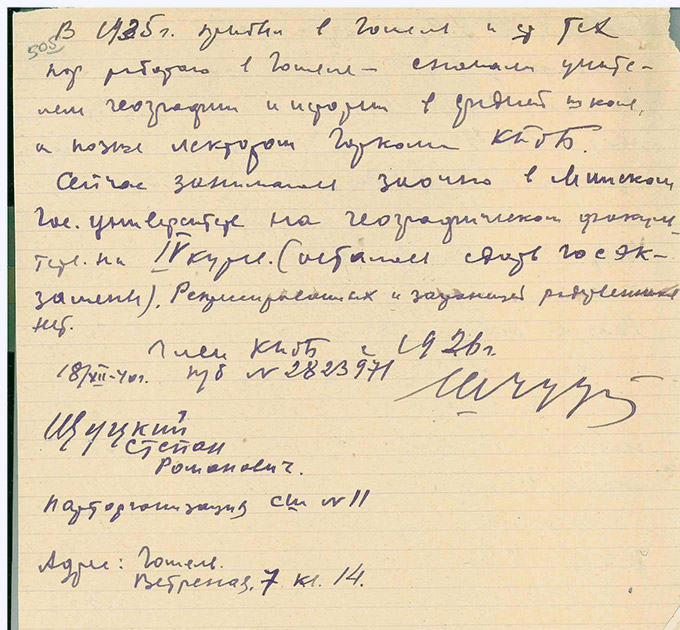 505
В 1935г. прибыл в Гомель и с тех
пор работаю в Гомеле – сначала учите-
лем географии и истории в средней школе,
а позже лектором Горкома КП(б)Б.
Сейчас занимаюсь заочно в Минском
Гос. университете на географическом факуль-
тете. на IV курсе. (осталось сдать госэк-
замены). Репрессированных и заграницей родственников
нет.
Член КП(б)Б с 1926г.
18/XII-40г. п/б № 2823971
Щуцкий
Степан
Романович.
Парторганизация сш № 11
Адрес: Гомель.
Ветреная, 7 кв. 14.